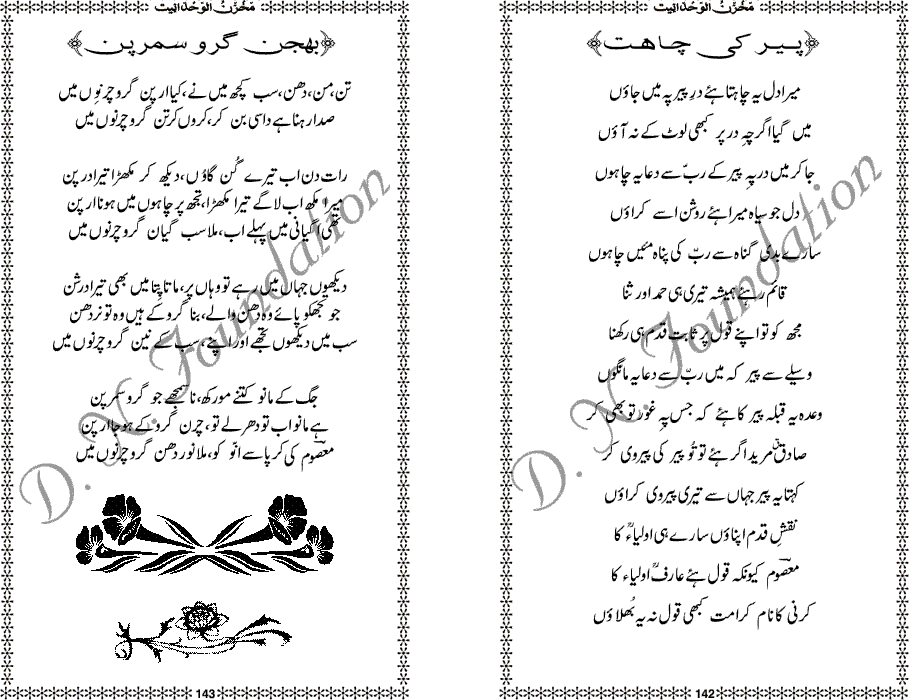 مخزن الوحدانیت
پیر کی چاہت
میرا دل یہ چاہتا ہئے درِ پیر پہ میں جاؤں
میں گیا اگرچہ در پر کبھی لوٹ کے نہ آؤں
جا کر میں در پہ پیر کے ربّ سے دعا یہ چاہوں
دل جو سیاہ میرا ہئے روشن اسے کراؤں
سارے بدی گناہ سے ربّ کی پناہ مئیں چاہوں
قائم رہئے ہمیشہ تیری ہی حمد اور ثنا
مجھ کو تو اپنے قول پر ثابت قدم ہی رکھنا
وسیلے سے پیر کہ میں ربّ سے دعا یہ مانگوں
وعدہ یہ قبلہ پیر کا ہئے کہ جس پہ غور تو بھی کر
صادق مرید اگر ہئے تو تُو پیر کی پیروی کر
کہتا یہ پیر جہاں سے تیری پیروی کراؤں
نقشِ قدم اپناؤں سارے ہی اولیاءؒ کا
معصوم کیونکہ قول ہئے عارفؒ اولیاء کا
کرنی کا نام کرامت کبھی قول نہ یہ بُھلاؤں
142
مخزن الوحدانیت
بھجن گرو سمرپن
تن، من، دھن، سب کچھ میں نے، کیا ارپن گرو چرنوں میں
صدا رہنا ہے داسی بن کر، کروں کرتن گرو چرنوں میں
رات دن اب تیرے گُن گاؤں، دیکھ کر مکھڑا تیرا درپن
میرا مکھ اب لاگے تیرا مکھڑا، تجھ پر چاہوں میں ہونا ارپن
تھی اگیانی میں پہلے اب، ملا سب گیان گرو چرنوں میں
دیکھوں جہاں میں رہے تو وہاں پر، ماتا پتا میں بھی تیرا درشن
جو تجھکو پائے وہ دھن والے، بنا گرو کے ہیں وہ تو نردھن
سب میں دیکھوں تجھے اور اپنے، سب کے نین گرو چرنوں میں
جگ کے مانو کتنے مورکھ، نا سمجھے جو گرو سمرپن
ہے مانو اب تو دھر لے تو، چرن گرو کے ہو جا ارپن
معصوم کی کرپا سے انّو کو، ملا نور دھن گرو چرنوں میں
143
D. N. Foundation
D. N. Foundation